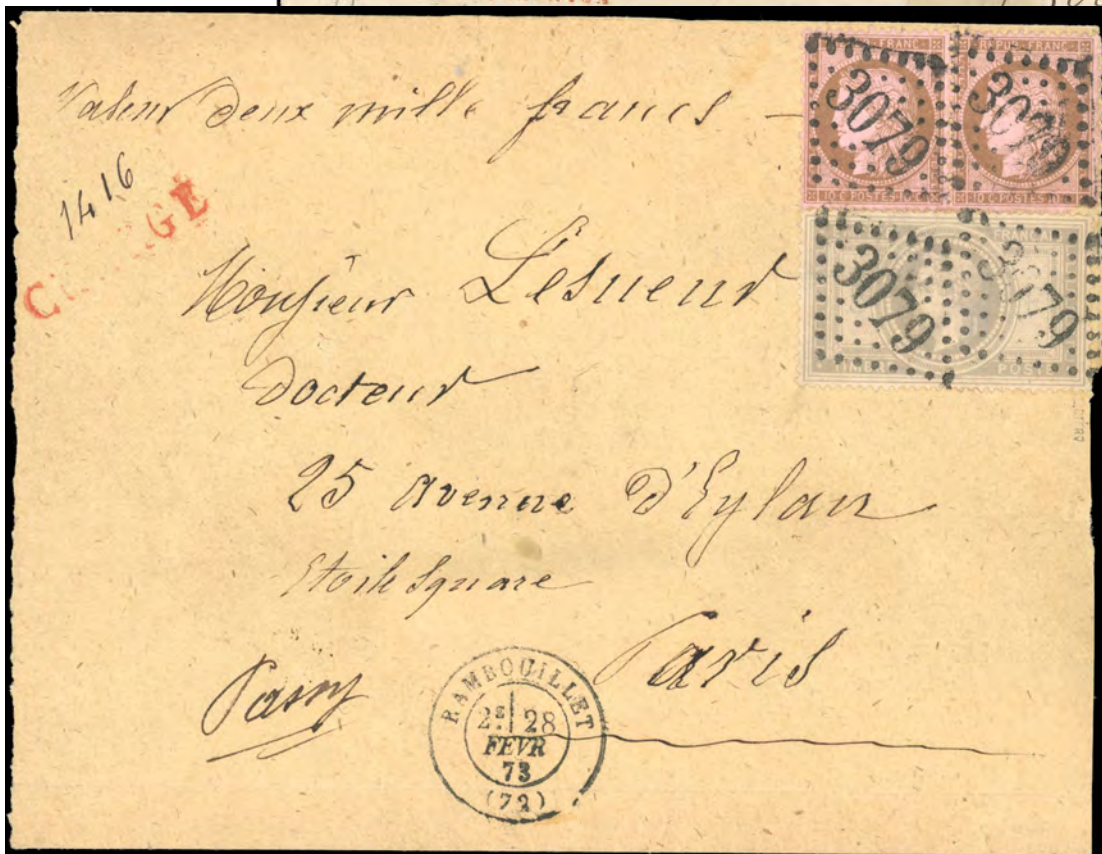 Valeur deux mille francs —
1416
3079 3079
10 C POSTES 10 C
3079 3079
TIMBRE POSTE
Monsieur Lesueur
Docteur
25 avenue d'Eylau
Etoile Square
Paris
Passy
RAMBOUILLET
2E 28
FEVR
73
(72)